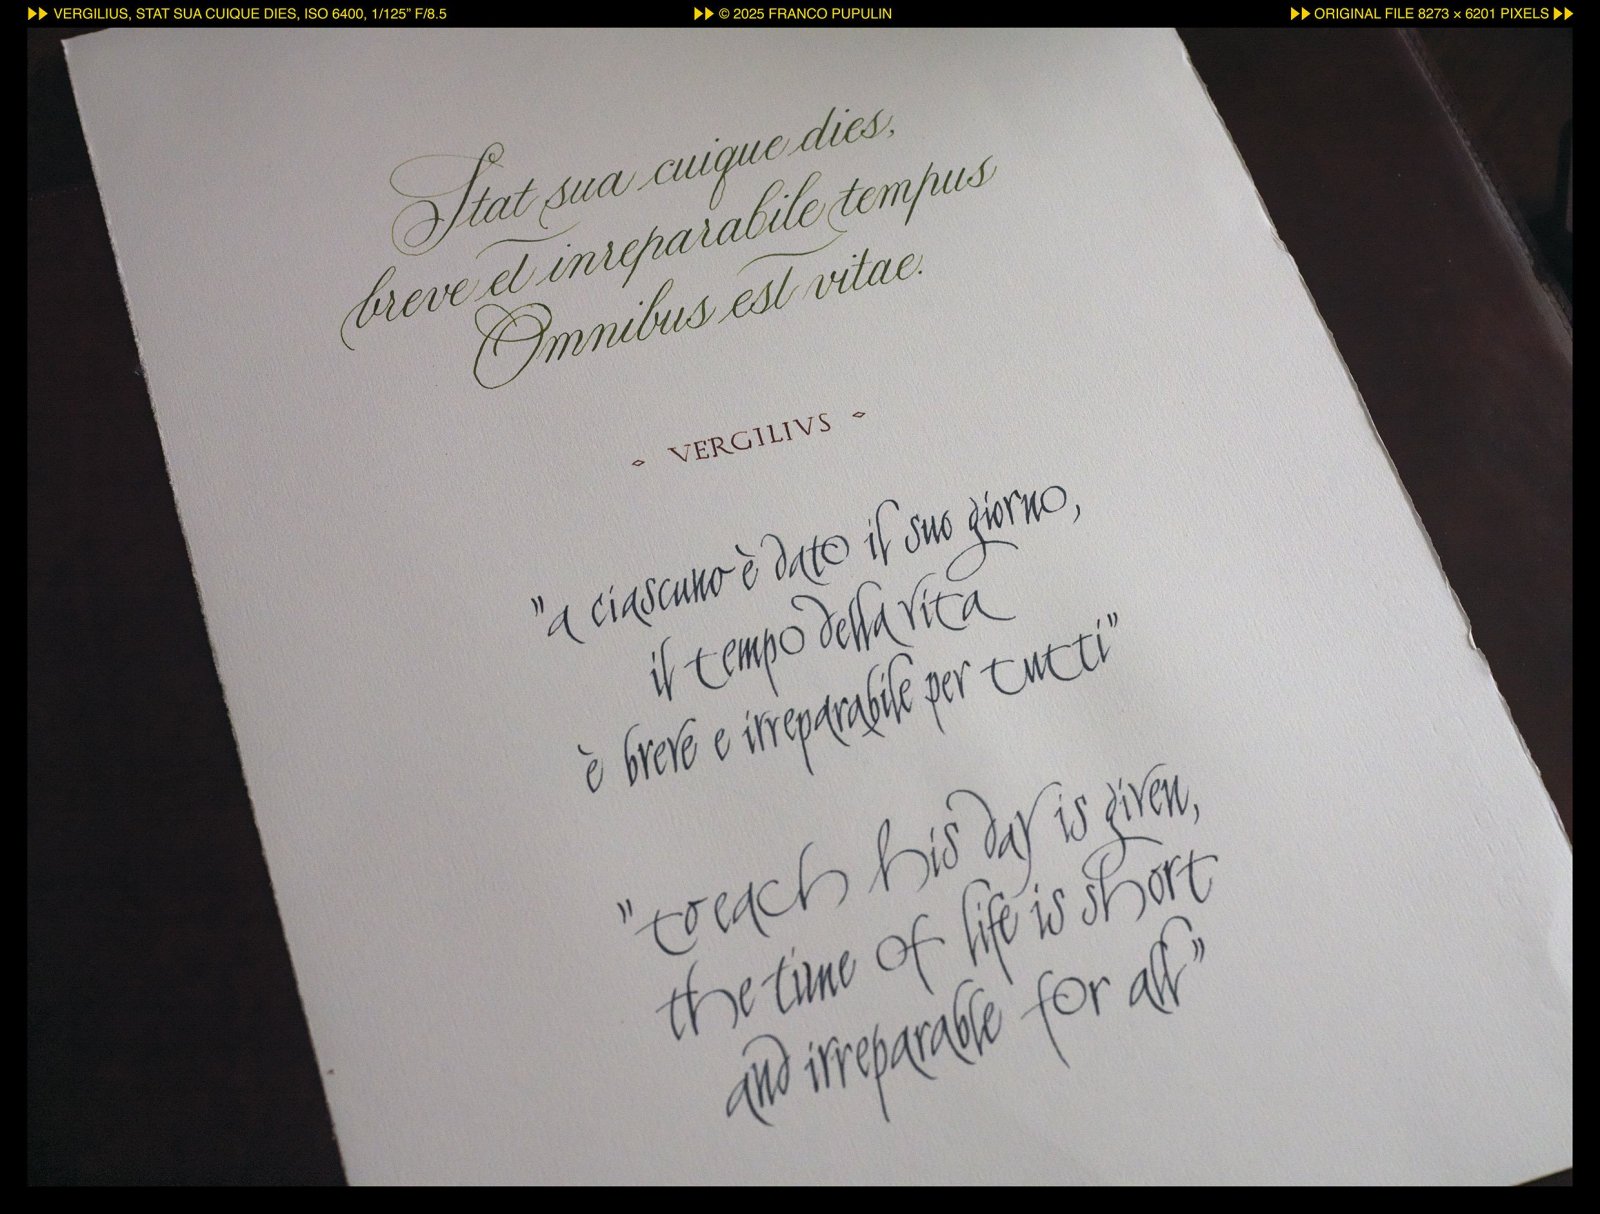 VERGILIUS, STAT SUA CUIQUE DIES, ISO 6400, 1/125” F/8.5
© 2025 FRANCO PUPULIN
ORIGINAL FILE 8273 × 6201 PIXELS
Stat sua cuique dies,
breve et inreparabile tempus
Omnibus est vitae.
VERGILIVS
"a ciascuno è dato il suo giorno,
il tempo della vita
è breve e irreparabile per tutti"
"to each his day is given,
the time of life is short
and irreparable for all"